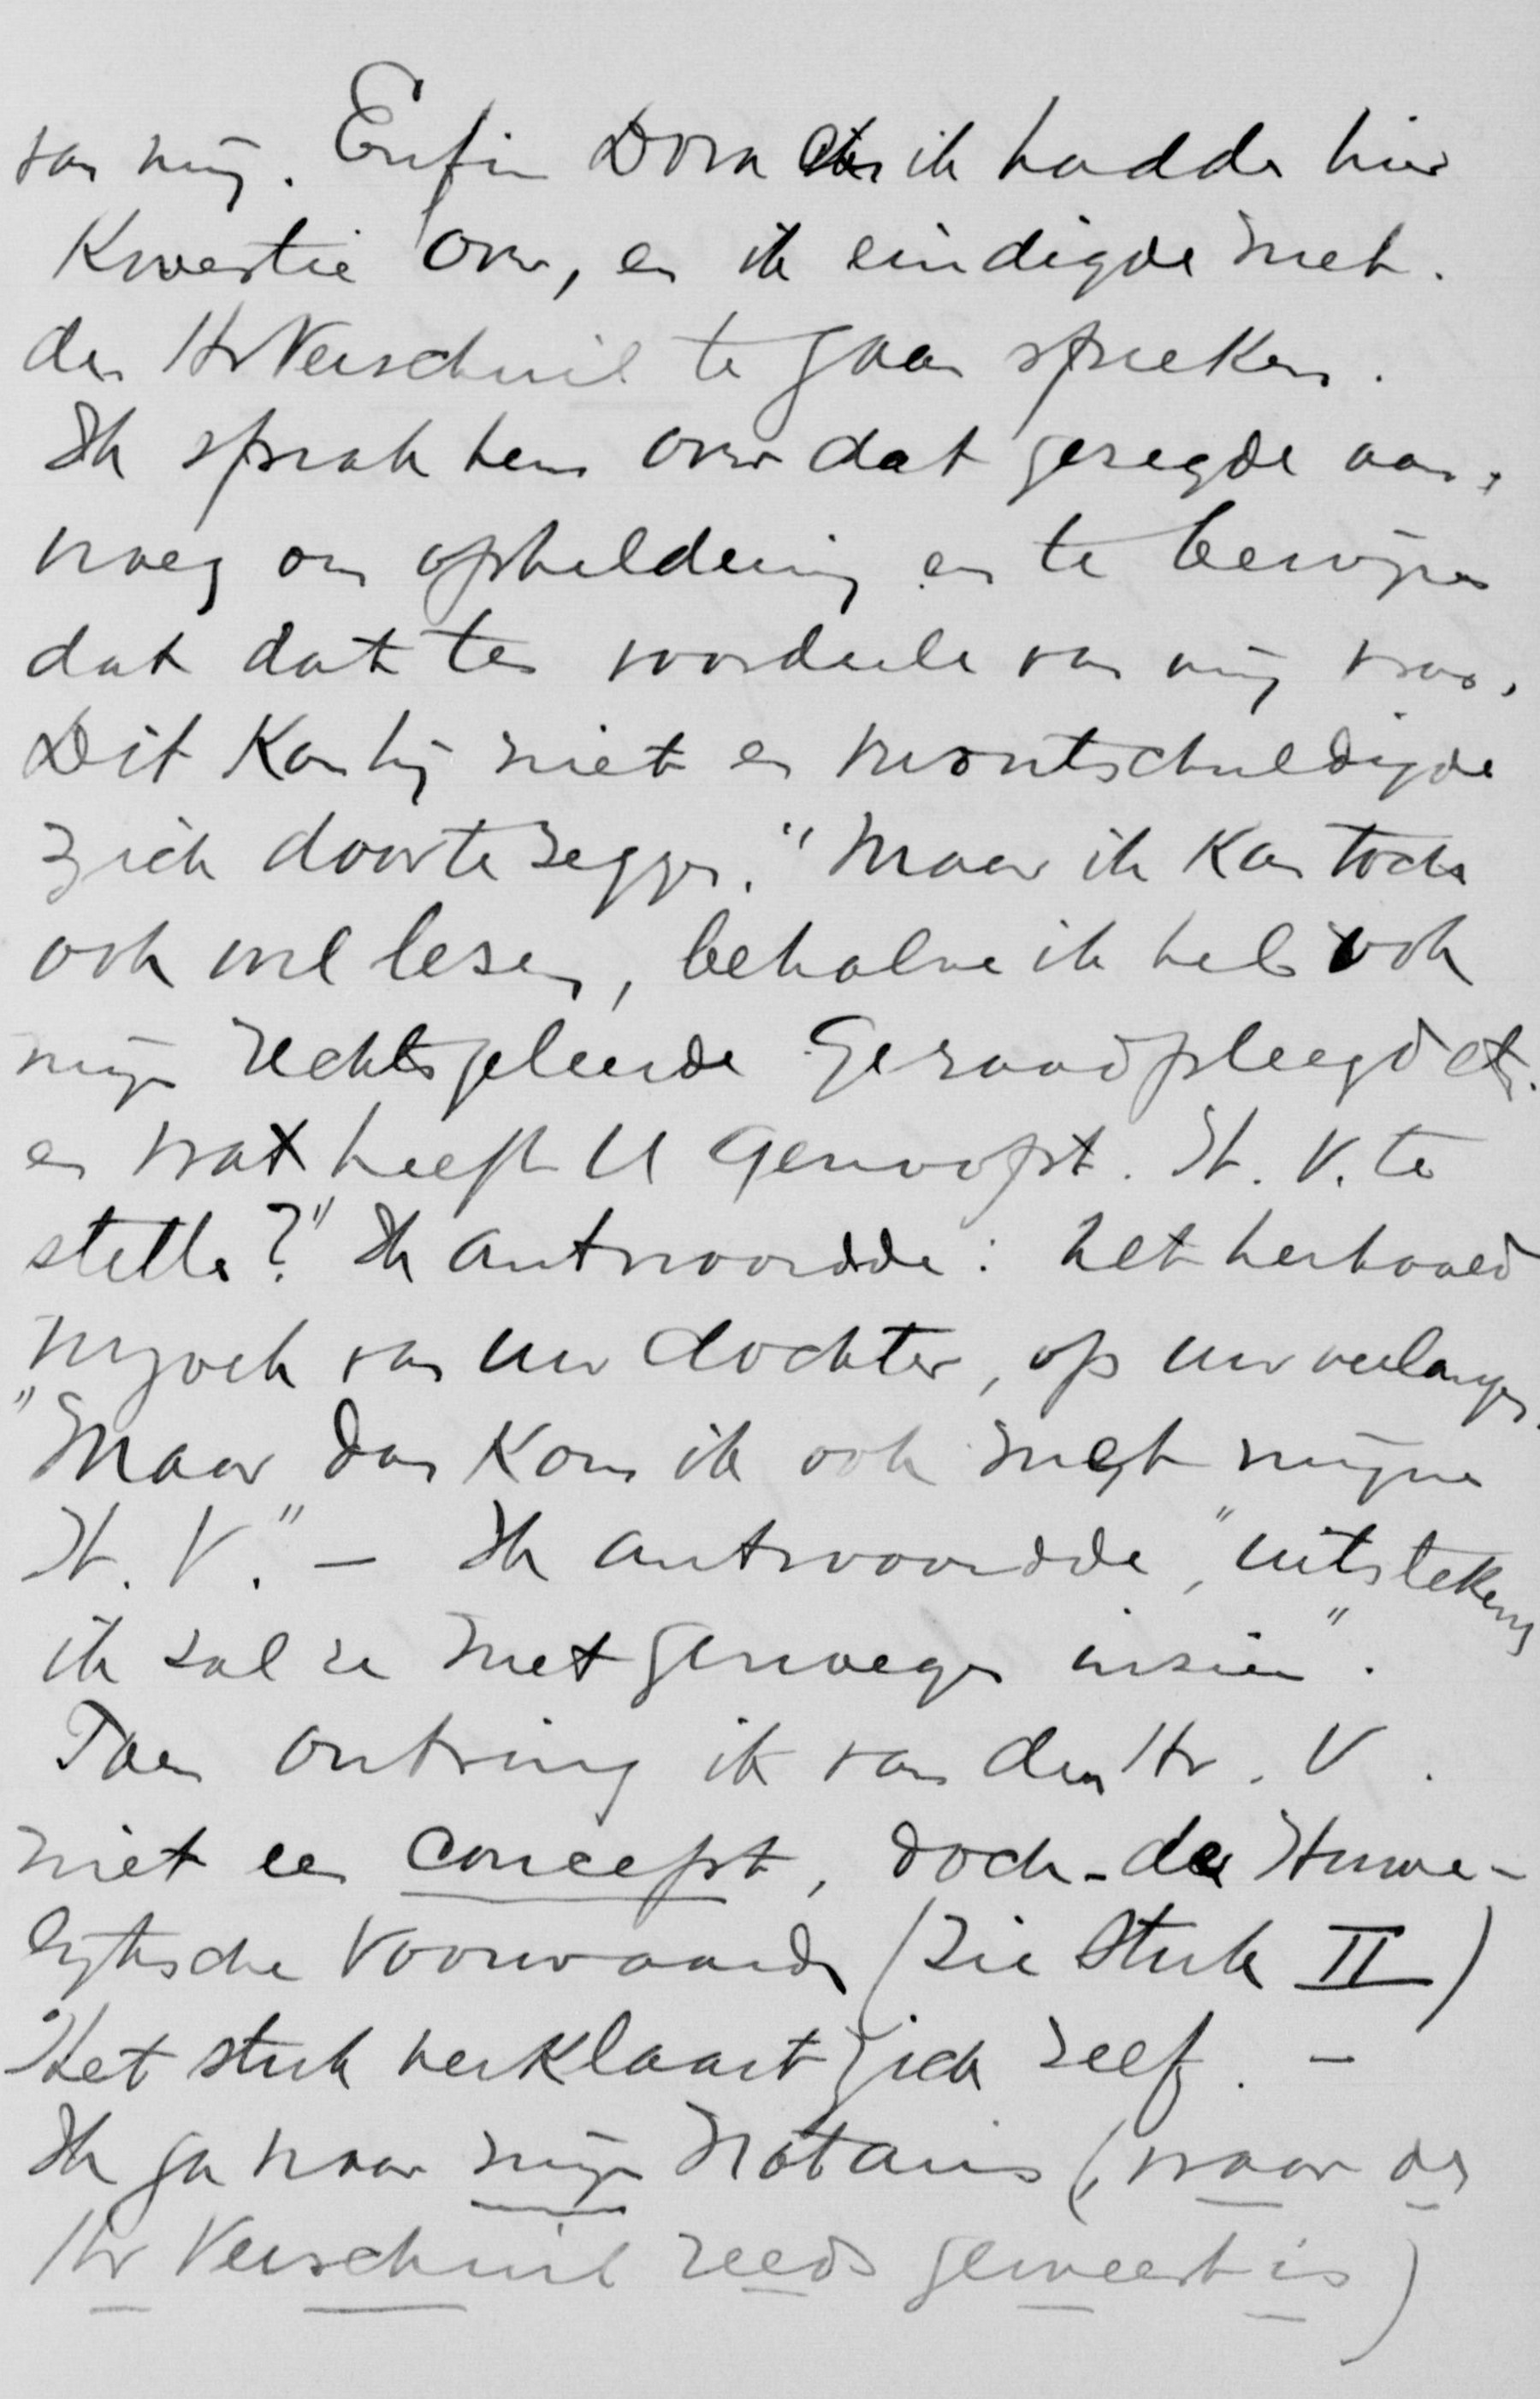 van mij. Enfin Dora en ik hadden hier
Kwestie over, en ik eindigde met
den Hr Verschuil te gaan spreken.
Ik sprak hem over dat gezegde aan,
vroeg om opheldering en te bewijzen
dat dat ten voordeele van mij was.
Dit kon hij niet en verontschuldigde
zich door te zeggen. "Maar ik kan toch
ook wel lezen, behalve ik heb ook
mijn rechtsgeleerde geraadpleegd etc.
en wat heeft U genoopt H. V. te
stellen?" Ik antwoordde: het herhaald
verzoek van uw dochter, op uw verlangen.
"Maar dan kom ik ook met mijne
H. V." – Ik antwoordde, "uitstekend
ik zal ze met genoegen inzien".
Toen ontving ik van den Hr. V.
niet een concept, doch de Huwe-
lijksche Voorwaarden (zie Stuk II)
Het stuk verklaart zich zelf. –
Ik ga naar mijn Notaris (, waar de
Hr Verschuil reeds geweest is)